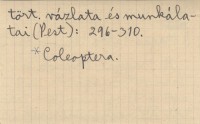 tört. vázlata és munkála-
tai (Pest): 296-310.
* Coleoptera.